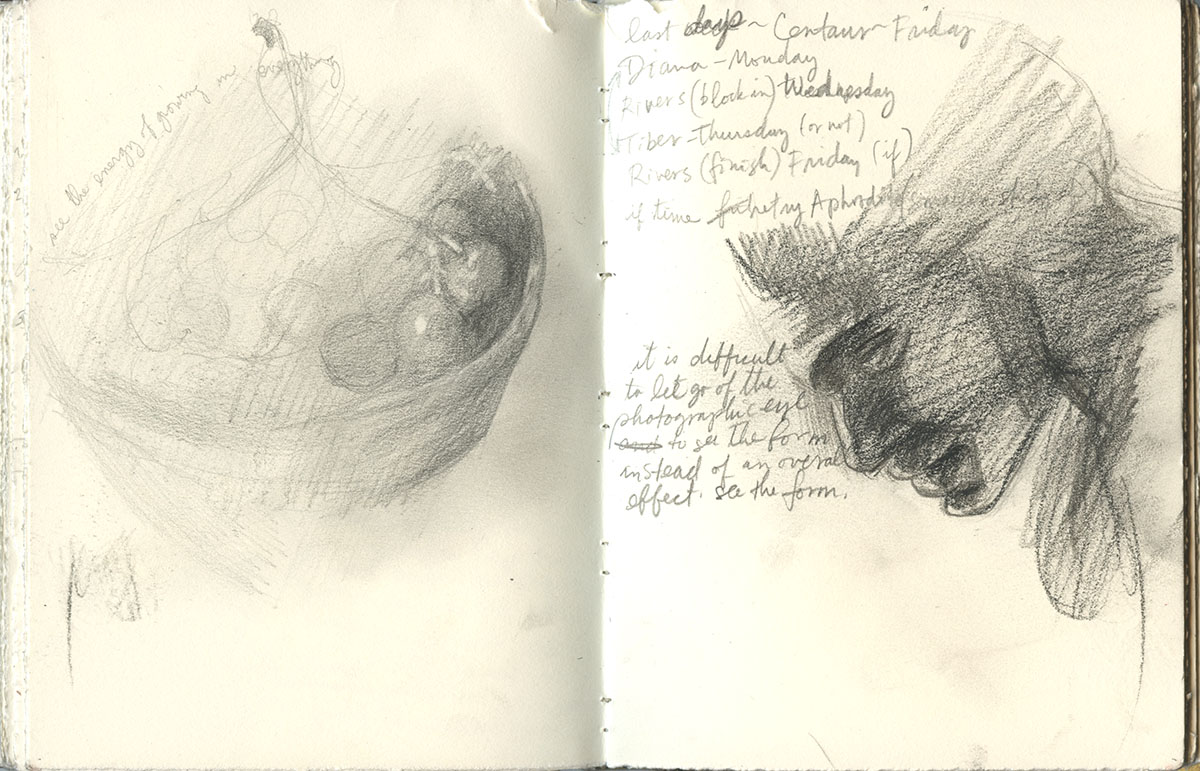 see the energy of growing in everything
last days ~ Centaur ~ Friday
Diana - Monday
Rivers (block in) Wednesday
Tiber - Thursday (or not)
Rivers (finish) Friday (if)
if time Aphrodite
it is difficult
to let go of the
photographic eye
and to see the form
instead of an overall
effect. see the form.